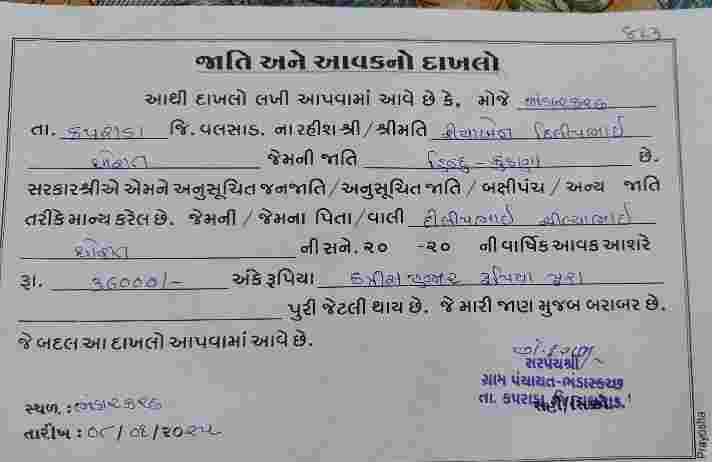 ૬૮૩
જાતિ અને આવકનો દાખલો
આથી દાખલો લખી આપવામાં આવે છે કે, મોજે ભંડારકચ્છ
તા. કપરાડા જિ. વલસાડ. ના રહીશ શ્રી/શ્રીમતિ દિલીપભાઇ
જેમની જાતિ હિન્દુ - કુંકણા છે.
સરકારશ્રીએ એમને અનુસૂચિત જનજાતિ/અનુસૂચિત જાતિ / બક્ષીપંચ / અન્ય જાતિ
તરીકે માન્ય કરેલ છે. જેમની / જેમના પિતા/વાલી દિલીપભાઇ
ની સને. ૨૦ -૨૦ ની વાર્ષિક આવક આશરે
રૂા. ૩૬૦૦૦/- અંકે રૂપિયા છત્રીસ હજાર રૂપિયા પુરા
પુરી જેટલી થાય છે. જે મારી જાણ મુજબ બરાબર છે.
જે બદલ આ દાખલો આપવામાં આવે છે.
સરપંચશ્રી
ગ્રામ પંચાયત-ભંડારકચ્છ
સ્થળ : ભંડારકચ્છ
તા. કપરાડા, જિ.વલસાડ.
સહી/સિક્કો
તારીખ :
Prayosha